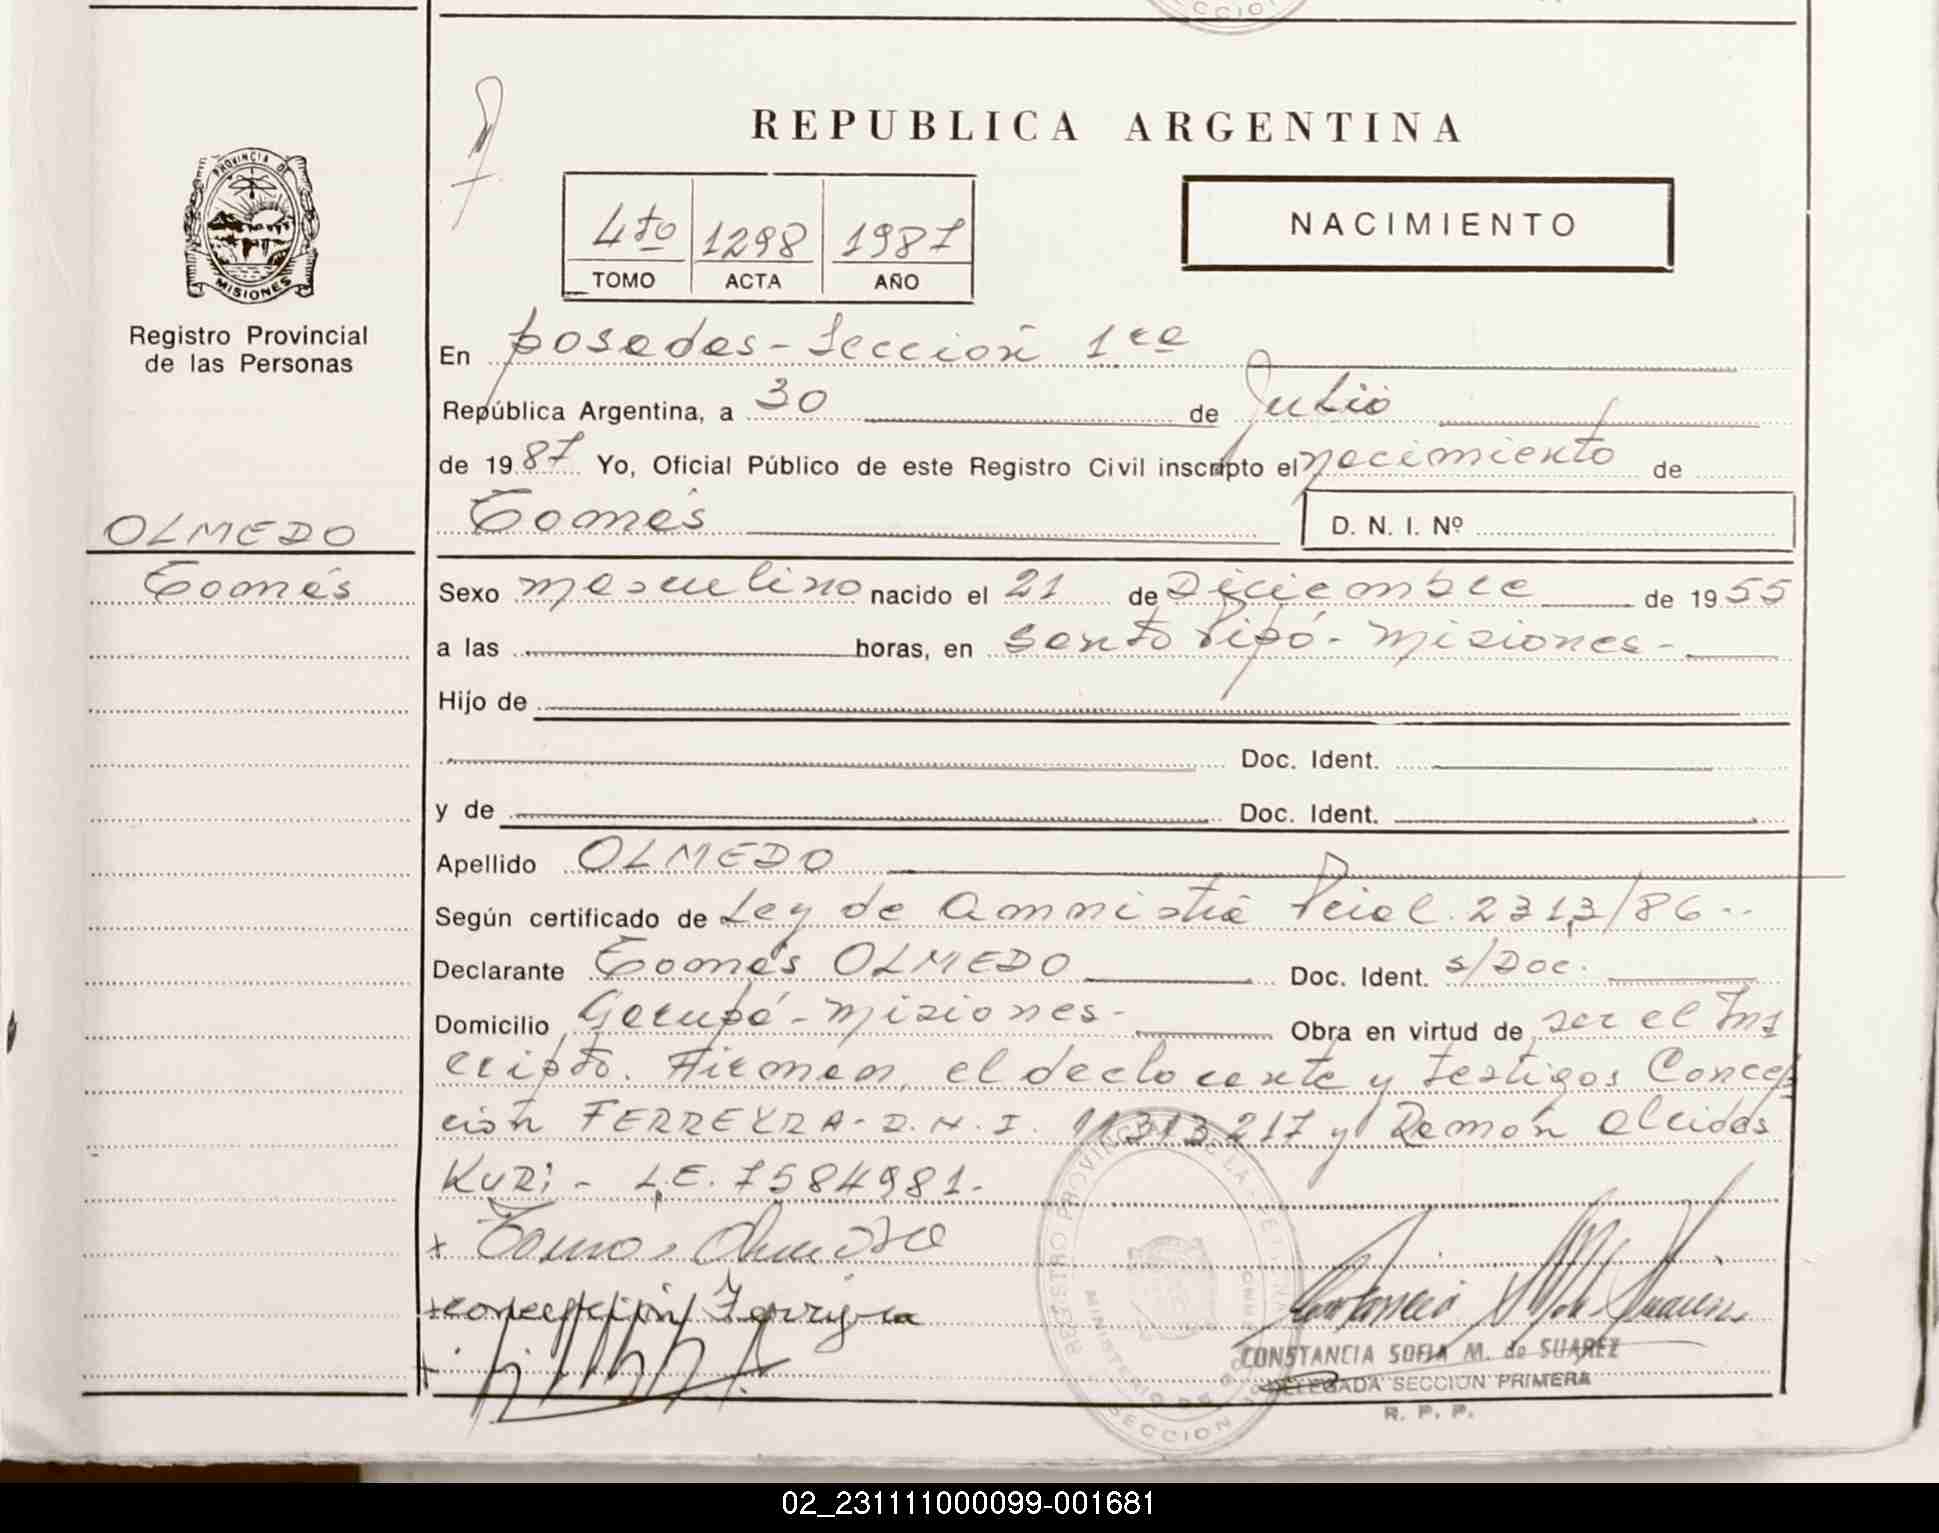 REPUBLICA ARGENTINA
PROVINCIA DE
MISIONES
Registro Provincial
de las Personas
4to 1298 1987
TOMO ACTA AÑO
NACIMIENTO
En Posadas - Sección 1ra
República Argentina, a 30 de Julio
de 1987 Yo, Oficial Público de este Registro Civil inscripto el nacimiento de
Tomás D. N. I. Nº
OLMEDO
Tomás
Sexo masculino nacido el 21 de Diciembre de 1955
a las horas, en Santo Pipó - Misiones -
Hijo de
Doc. Ident.
y de Doc. Ident.
Apellido OLMEDO
Según certificado de Ley de Amnistia Pcial. 2313/86 --
Declarante Tomás OLMEDO Doc. Ident. s/Doc.
Domicilio Garupá - Misiones - Obra en virtud de ser el Ins
cripto. Firman, el declarante y testigos Concep
ción FERREYRA - D.N.I. 11313217 y Ramón Alcides
KURI - L.E. 7584981.-
x Tomas Olmedo
x concepcion Ferreyra
CONSTANCIA SOFIA M. de SUAREZ
DELEGADA SECCION PRIMERA
R. P. P.
02_231111000099-001681